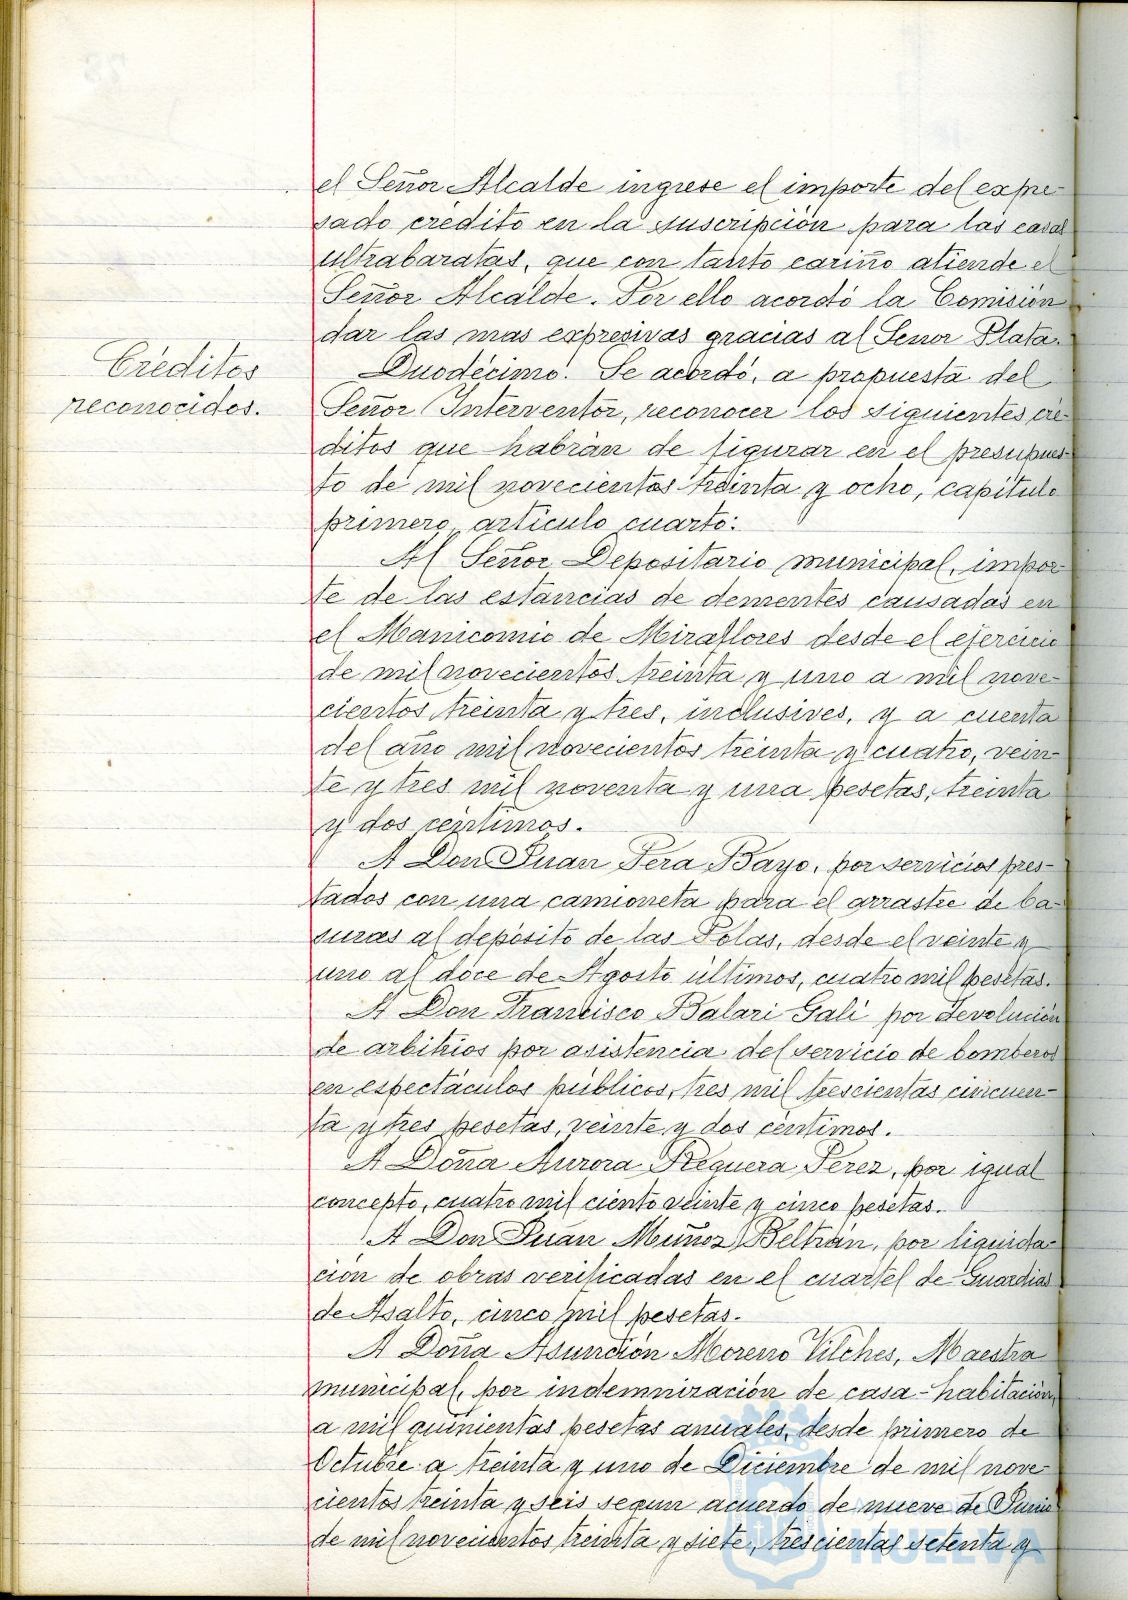 el Señor Alcalde ingrese el importe del expre-
sado crédito en la suscripción para las casas
ultrabaratas, que con tanto cariño atiende el
Señor Alcalde. Por ello acordó la Comisión
dar las mas expresivas gracias al Señor Plata.
Créditos
reconocidos.
Duodécimo. Se acordó, a propuesta del
Señor Interventor, reconocer los siguientes cré-
ditos que habrán de figurar en el presupues-
to de mil novecientos treinta y ocho, capítulo
primero, artículo cuarto:
Al Señor Depositario municipal, impor-
te de las estancias de dementes causadas en
el Manicomio de Miraflores desde el ejercicio
de mil novecientos treinta y uno a mil nove-
cientos treinta y tres, inclusives, y a cuenta
del año mil novecientos treinta y cuatro, vein-
te y tres mil noventa y una pesetas, treinta
y dos céntimos.
A Don Juan Pera Bayo, por servicios pres-
tados con una camioneta para el arrastre de ba-
suras al depósito de las Polas, desde el veinte y
uno al doce de Agosto últimos, cuatro mil pesetas.
A Don Francisco Balari Galí por devolución
de arbitrios por asistencia del servicio de bomberos
en espectáculos públicos, tres mil trescientas cincuen-
ta y tres pesetas, veinte y dos céntimos.
A Doña Aurora Reguera Perez, por igual
concepto, cuatro mil ciento veinte y cinco pesetas.
A Don Juan Muñoz Beltrán, por liquida-
ción de obras verificadas en el cuartel de Guardias
de Asalto, cinco mil pesetas.
A Doña Asunción Moreno Vilches, Maestra
municipal, por indemnización de casa-habitación,
a mil quinientas pesetas anuales, desde primero de
Octubre a treinta y uno de Diciembre de mil nove-
cientos treinta y seis segun acuerdo de nueve de Junio
de mil novecientos treinta y siete, trescientas setenta y
HUELVA